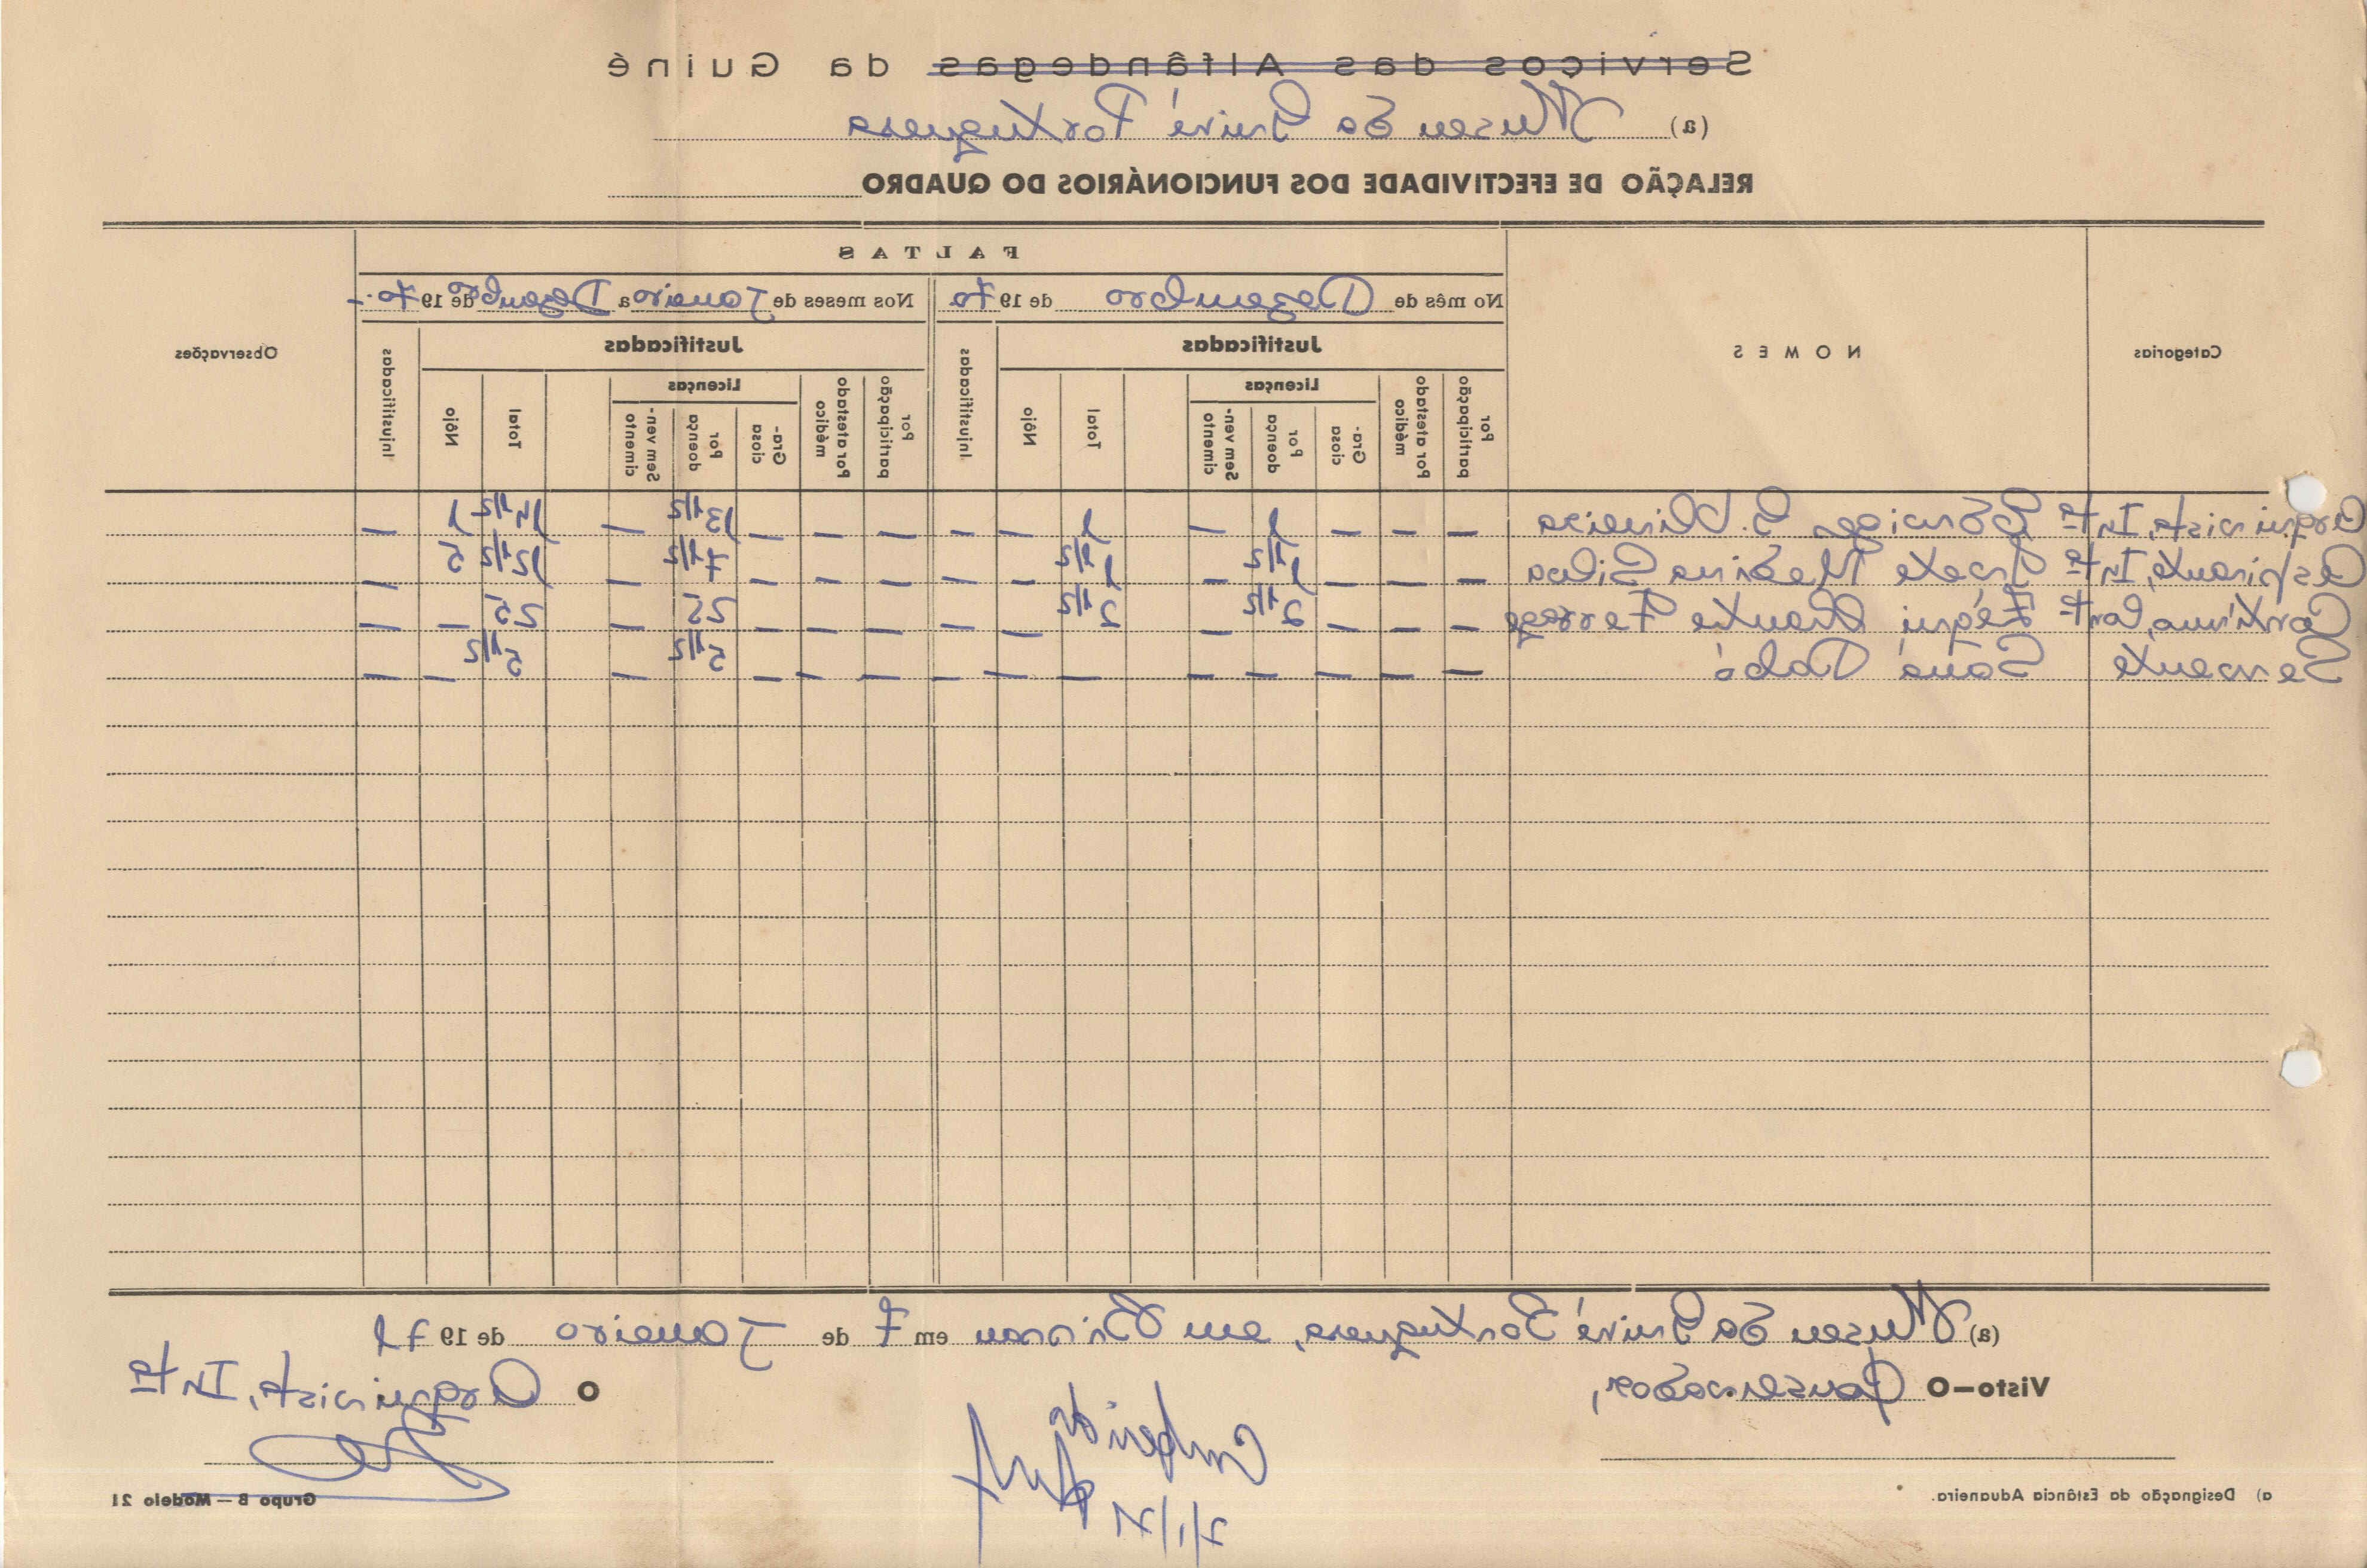 Serviços das Alfândegas da Guiné
(a) Museu da Guiné Portuguesa
RELAÇÃO DE EFECTIVIDADE DOS FUNCIONÁRIOS DO QUADRO
Categorias
NOMES
FALTAS
Observações
No mês de Dezembro de 1970
Nos meses de Janeiro a Dezembro de 1970.-
Justificadas
Injustificadas
Justificadas
Injustificadas
Por participação
Por atestado médico
Licenças
Graciosa
Por doença
Sem vencimento
Total
Nôjo
Por participação
Por atestado médico
Licenças
Graciosa
Por doença
Sem vencimento
Total
Nôjo
Arquivista, Intº Rodrigo B. Oliveira — — — 1 — 1 — — — 13 1/2 — 14 1/2 1 —
Aspirante, Intº Silva — — — 1 1/2 — 1 1/2 — — — — — 7 1/2 — 12 1/2 5 —
— — — 2 1/2 — 2 1/2 — — — — — 25 — 25 — —
Servente — — — — — — — — — — — 5 1/2 — 5 1/2 — —
(a) Museu da Guiné Portuguesa, em Bissau em 7 de Janeiro de 1971
Visto—O Conservador,
O Arquivista, Intº
Conferido
7/1/71
a) Designação da Estância Aduaneira.
Grupo B — Modelo 21